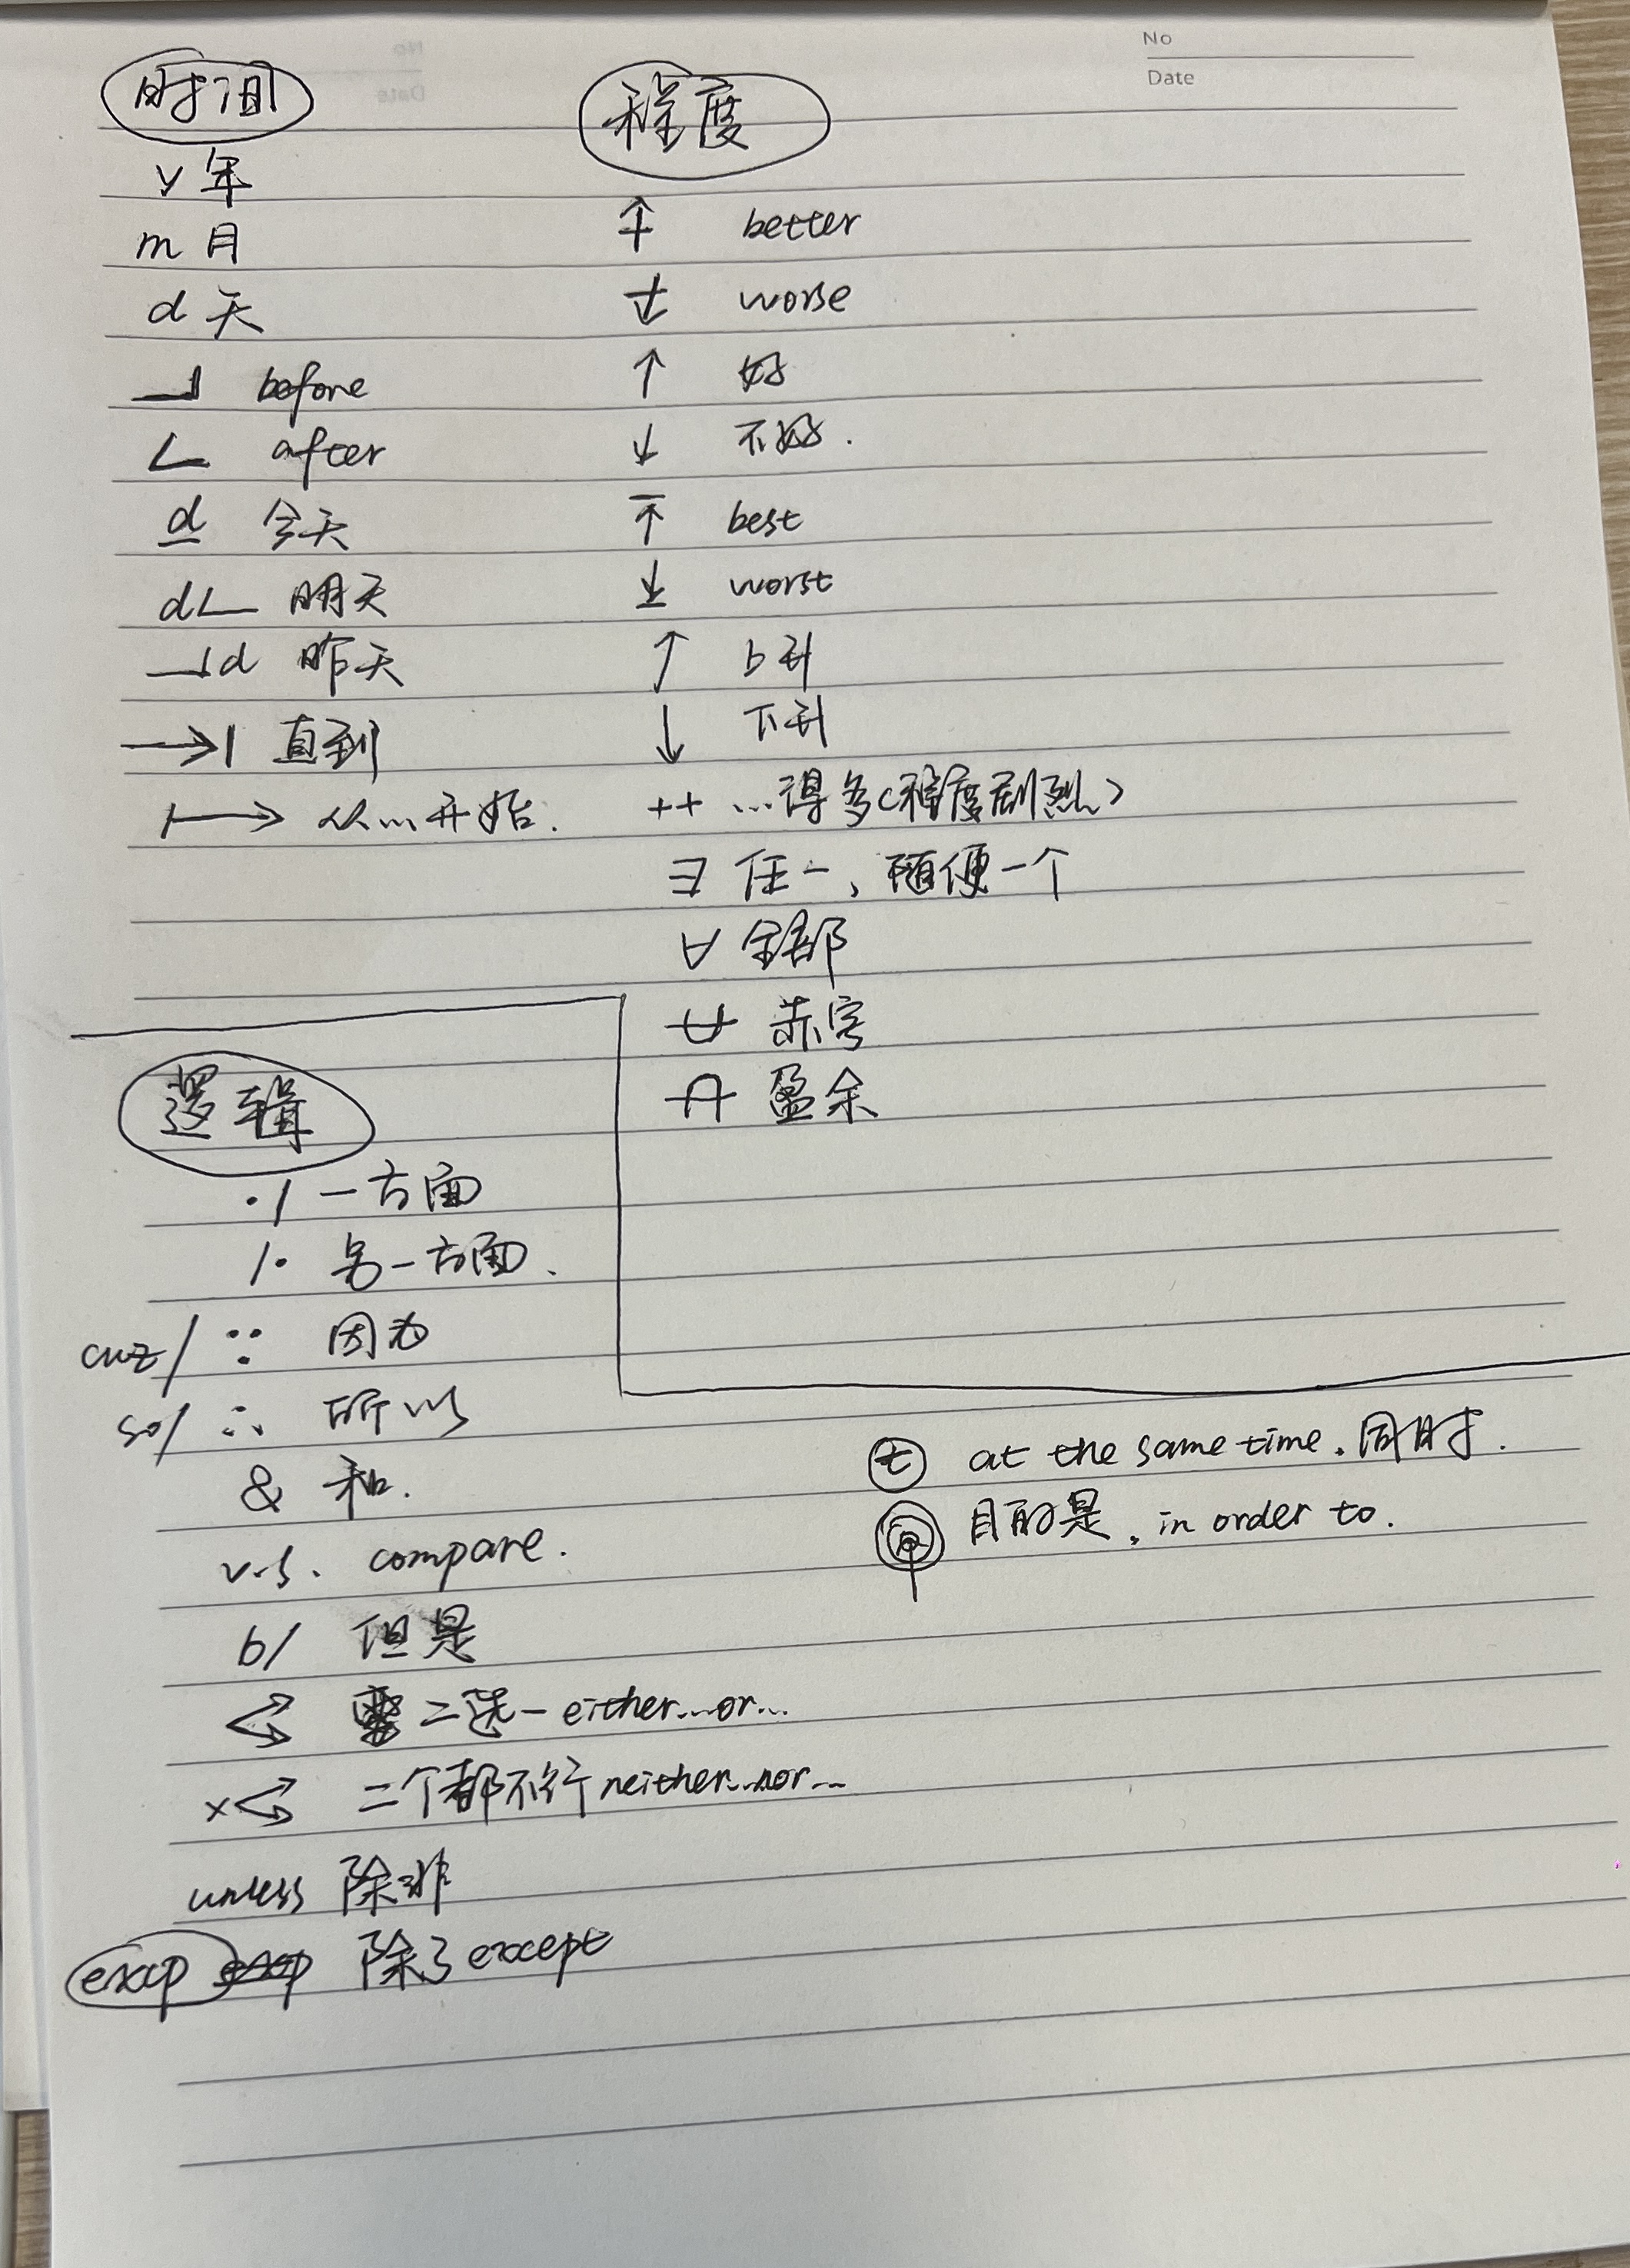 No
Date
时间
y 年
m 月
d 天
┘ before
∟ after
d 今天
d∟ 明天
┘d 昨天
→| 直到
|→ 从...开始.
程度
better
worse
↑ 好
↓ 不好.
best
worst
↑ 上升
↓ 下升
++ ...得多(程度剧烈)
∃ 任一、随便一个
∀ 全部
赤字
盈余
逻辑
·/ 一方面
/· 另一方面.
cuz/ ∵ 因为
so/ ∴ 所以
& 和.
v.s. compare.
b/ 但是
二选一 either...or...
x 二个都不行 neither...nor...
unless 除非
excp excp 除了 except
t at the same time. 同时.
目的是. in order to.